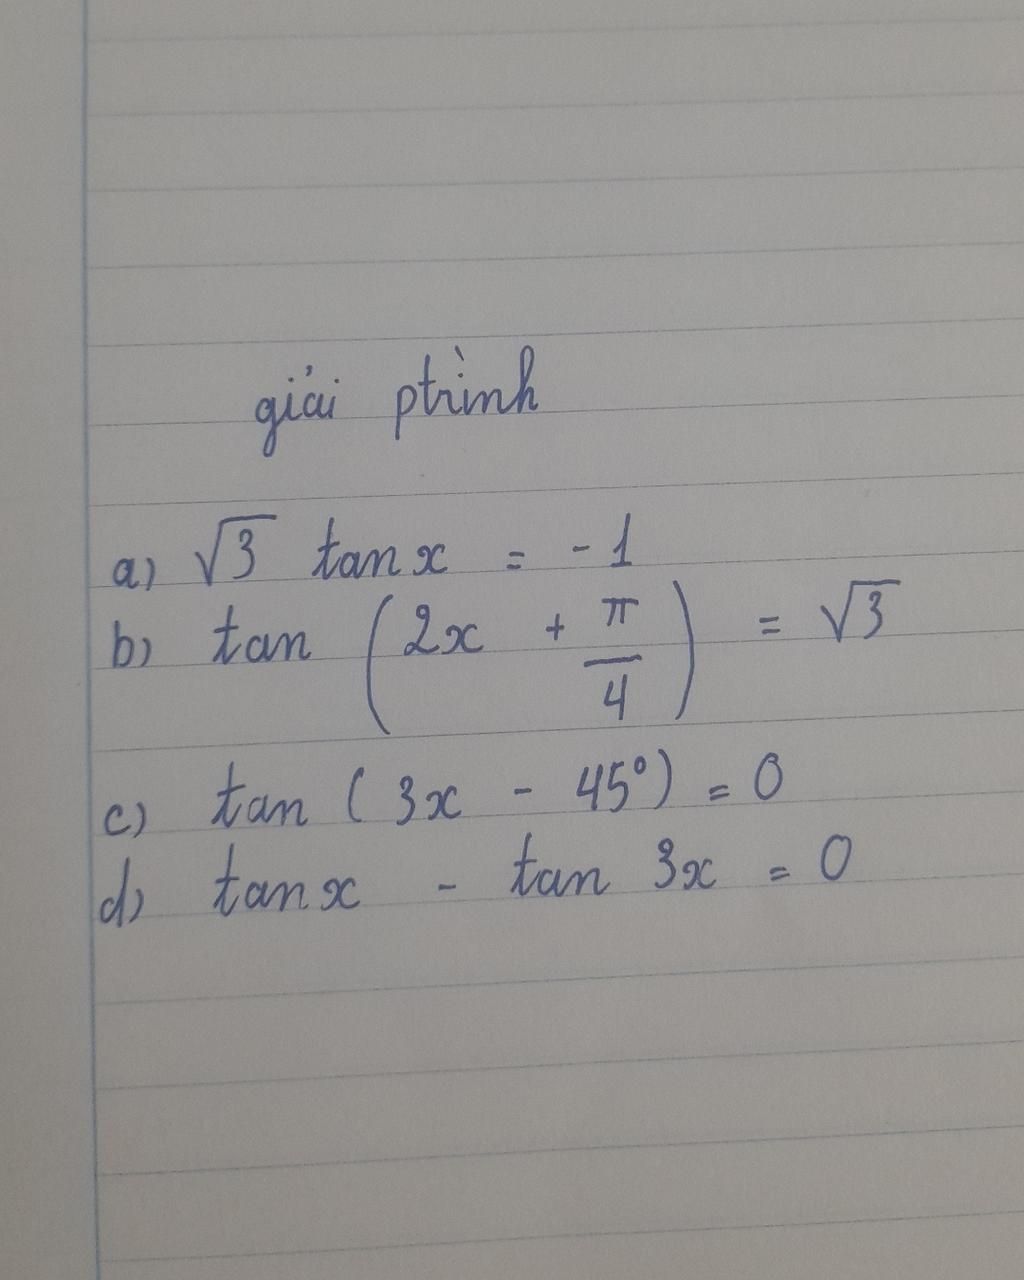 giải ptrình
a) √3 tan x = -1
b) tan (2x + π/4) = √3
c) tan (3x - 45°) = 0
d) tan x - tan 3x = 0